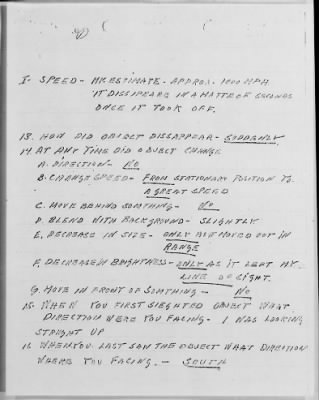 I- SPEED- MR ESTIMATE- APPROX. 1000 MPH
IT DISSIPEARS IN A MATTE OF SECONDS
ONCE IT TOOK OFF.
13. HOW DID OBJECT DISSAPPEAR- SUDDENLY
14 AT ANY TIME DID OBJECT CHANGE
A. DIRECTION- NO
B. CHANGE SPEED- FROM STATIONARY POSITION TO
A GREAT SPEED
C. MOVE BEHIND SOMTHING- NO
D. BLEND WITH BACKGROUND- SLIGHTLY
E. DECREASE IN SIZE- ONLY AS MOVED OUT IN
RANGE
F. DECREASE IN BRIGHTNESS- ONLY AS IT LEFT MY
LINE OF SIGHT.
G. MOVE IN FRONT OF SOMTHING- NO
15- WHEN YOU FIRST SIEGHTED OBJECT WHAT
DIRECTION WERE YOU FACING- I WAS LOOKING
STRIGHT UP
16 WHEN YOU LAST SAW THE OBJECT WHAT DIRECTION
WHERE YOU FACING.- SOUTH